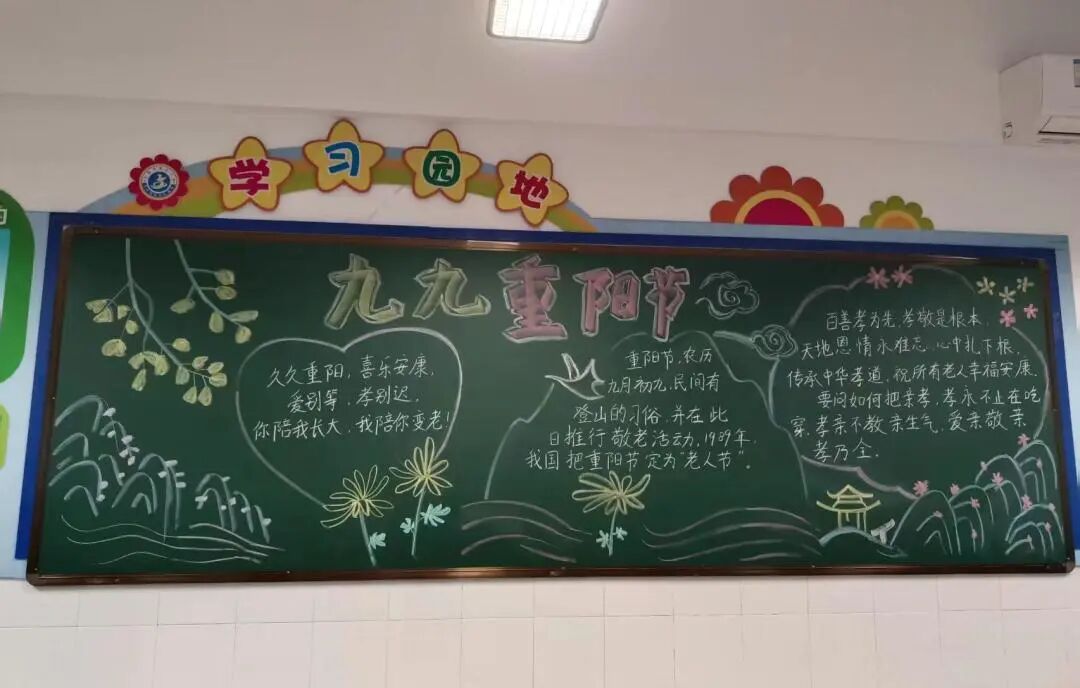 学习园地
九九重阳节
久久重阳,喜乐安康,
爱别等,孝别迟,
你陪我长大,我陪你变老!
重阳节,农历
九月初九,民间有
登山的习俗,并在此
日推行敬老活动,1989年,
我国把重阳节定为“老人节”。
百善孝为先,孝敬是根本,
天地恩情永难忘,心中扎下根,
传承中华孝道,祝所有老人幸福安康,
要问如何把亲孝,孝永不止在吃
穿,孝亲不教亲生气,爱亲敬亲
孝乃全.